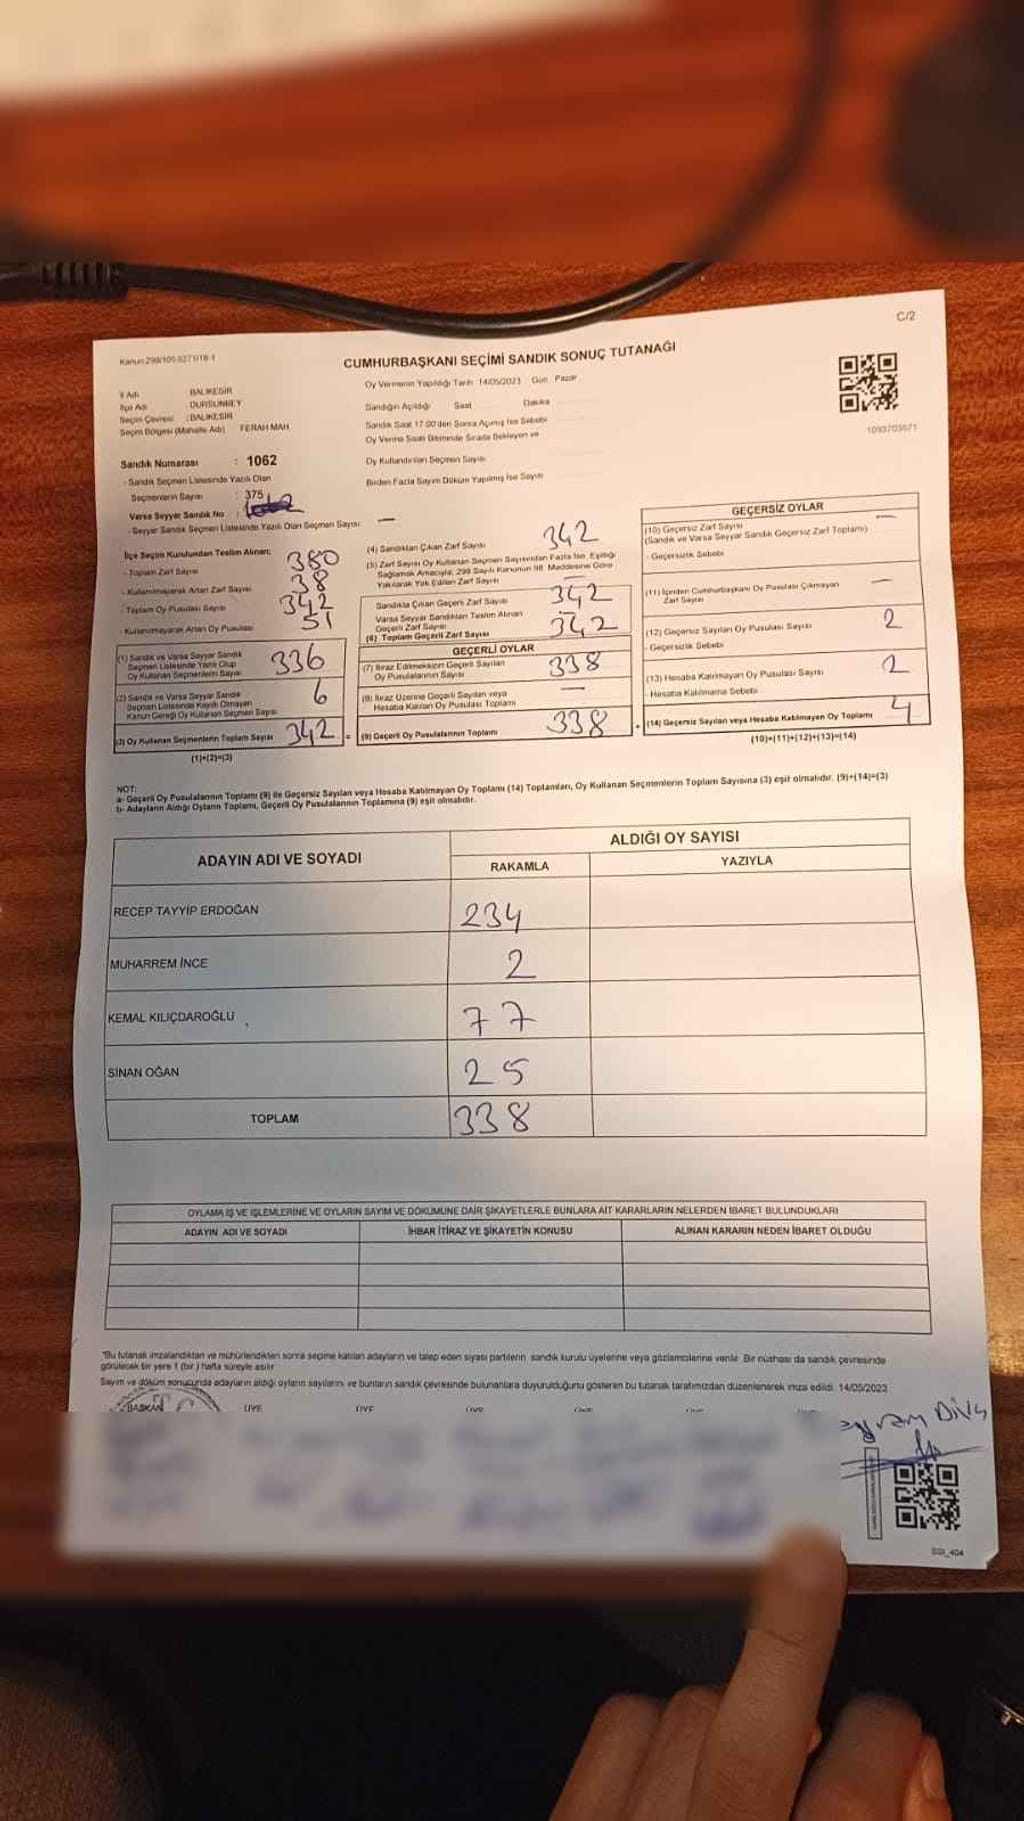 C/2
Kanun:298/105 6271/18-1
CUMHURBAŞKANI SEÇİMİ SANDIK SONUÇ TUTANAĞI
İl Adı BALIKESİR
İlçe Adı : DURSUNBEY
Seçim Çevresi : BALIKESİR
Seçim Bölgesi (Mahalle Adı) FERAH MAH
Oy Vermenin Yapıldığı Tarih :14/05/2023 Gün Pazar
Sandığın Açıldığı Saat Dakika
Sandık Saat 17.00'den Sonra Açılmış İse Sebebi
Oy Verme Saati Bitiminde Sırada Bekleyen ve
Oy Kullandırılan Seçmen Sayısı
Birden Fazla Sayım Döküm Yapılmış İse Sayısı
1093703671
Sandık Numarası : 1062
- Sandık Seçmen Listesinde Yazılı Olan
Seçmenlerin Sayısı : 375
Varsa Seyyar Sandık No :
- Seyyar Sandık Seçmen Listesinde Yazılı Olan Seçmen Sayısı —
İlçe Seçim Kurulundan Teslim Alınan;
- Toplam Zarf Sayısı 380
- Kullanılmayarak Artan Zarf Sayısı 38
- Toplam Oy Pusulası Sayısı 342
- Kullanılmayarak Artan Oy Pusulası 51
(1) Sandık ve Varsa Seyyar Sandık
Seçmen Listesinde Yazılı Olup
Oy Kullanan Seçmenlerin Sayısı 336
(2) Sandık ve Varsa Seyyar Sandık
Seçmen Listesinde Kayıtlı Olmayan
Kanun Gereği Oy Kullanan Seçmen Sayısı 6
(3) Oy Kullanan Seçmenlerin Toplam Sayısı 342 =
(1)+(2)=(3)
(4) Sandıktan Çıkan Zarf Sayısı 342
(5) Zarf Sayısı Oy Kullanan Seçmen Sayısından Fazla İse, Eşitliği
Sağlamak Amacıyla, 298 Sayılı Kanunun 98. Maddesine Göre
Yakılarak Yok Edilen Zarf Sayısı —
Sandıkta Çıkan Geçerli Zarf Sayısı 342
Varsa Seyyar Sandıktan Teslim Alınan
Geçerli Zarf Sayısı —
(6) Toplam Geçerli Zarf Sayısı 342
GEÇERLİ OYLAR
(7) İtiraz Edilmeksizin Geçerli Sayılan
Oy Pusulalarının Sayısı 338
(8) İtiraz Üzerine Geçerli Sayılan veya
Hesaba Katılan Oy Pusulası Toplamı —
(9) Geçerli Oy Pusulalarının Toplamı 338 +
GEÇERSİZ OYLAR
(10) Geçersiz Zarf Sayısı —
(Sandık ve Varsa Seyyar Sandık Geçersiz Zarf Toplamı)
- Geçersizlik Sebebi
(11) İçinden Cumhurbaşkanı Oy Pusulası Çıkmayan
Zarf Sayısı —
(12) Geçersiz Sayılan Oy Pusulası Sayısı 2
- Geçersizlik Sebebi
(13) Hesaba Katılmayan Oy Pusulası Sayısı 2
- Hesaba Katılmama Sebebi
(14) Geçersiz Sayılan veya Hesaba Katılmayan Oy Toplamı 4
(10)+(11)+(12)+(13)=(14)
NOT:
a- Geçerli Oy Pusulalarının Toplamı (9) ile Geçersiz Sayılan veya Hesaba Katılmayan Oy Toplamı (14) Toplamları, Oy Kullanan Seçmenlerin Toplam Sayısına (3) eşit olmalıdır. (9)+(14)=(3)
b- Adayların Aldığı Oyların Toplamı, Geçerli Oy Pusulalarının Toplamına (9) eşit olmalıdır.
ADAYIN ADI VE SOYADI
ALDIĞI OY SAYISI
RAKAMLA YAZIYLA
RECEP TAYYİP ERDOĞAN 234
MUHARREM İNCE 2
KEMAL KILIÇDAROĞLU 77
SİNAN OĞAN 25
TOPLAM 338
OYLAMA İŞ VE İŞLEMLERİNE VE OYLARIN SAYIM VE DÖKÜMÜNE DAİR ŞİKAYETLERLE BUNLARA AİT KARARLARIN NELERDEN İBARET BULUNDUKLARI
ADAYIN ADI VE SOYADI İHBAR İTİRAZ VE ŞİKAYETİN KONUSU ALINAN KARARIN NEDEN İBARET OLDUĞU
*Bu tutanak imzalandıktan ve mühürlendikten sonra seçime katılan adayların ve talep eden siyasi partilerin sandık kurulu üyelerine veya gözlemcilerine verilir. Bir nüshası da sandık çevresinde
görülecek bir yere 1 (bir ) hafta süreyle asılır
Sayım ve döküm sonucunda adayların aldığı oyların sayılarını ve bunların sandık çevresinde bulunanlara duyurulduğunu gösteren bu tutanak tarafımızdan düzenlenerek imza edildi. 14/05/2023
BAŞKAN ÜYE ÜYE